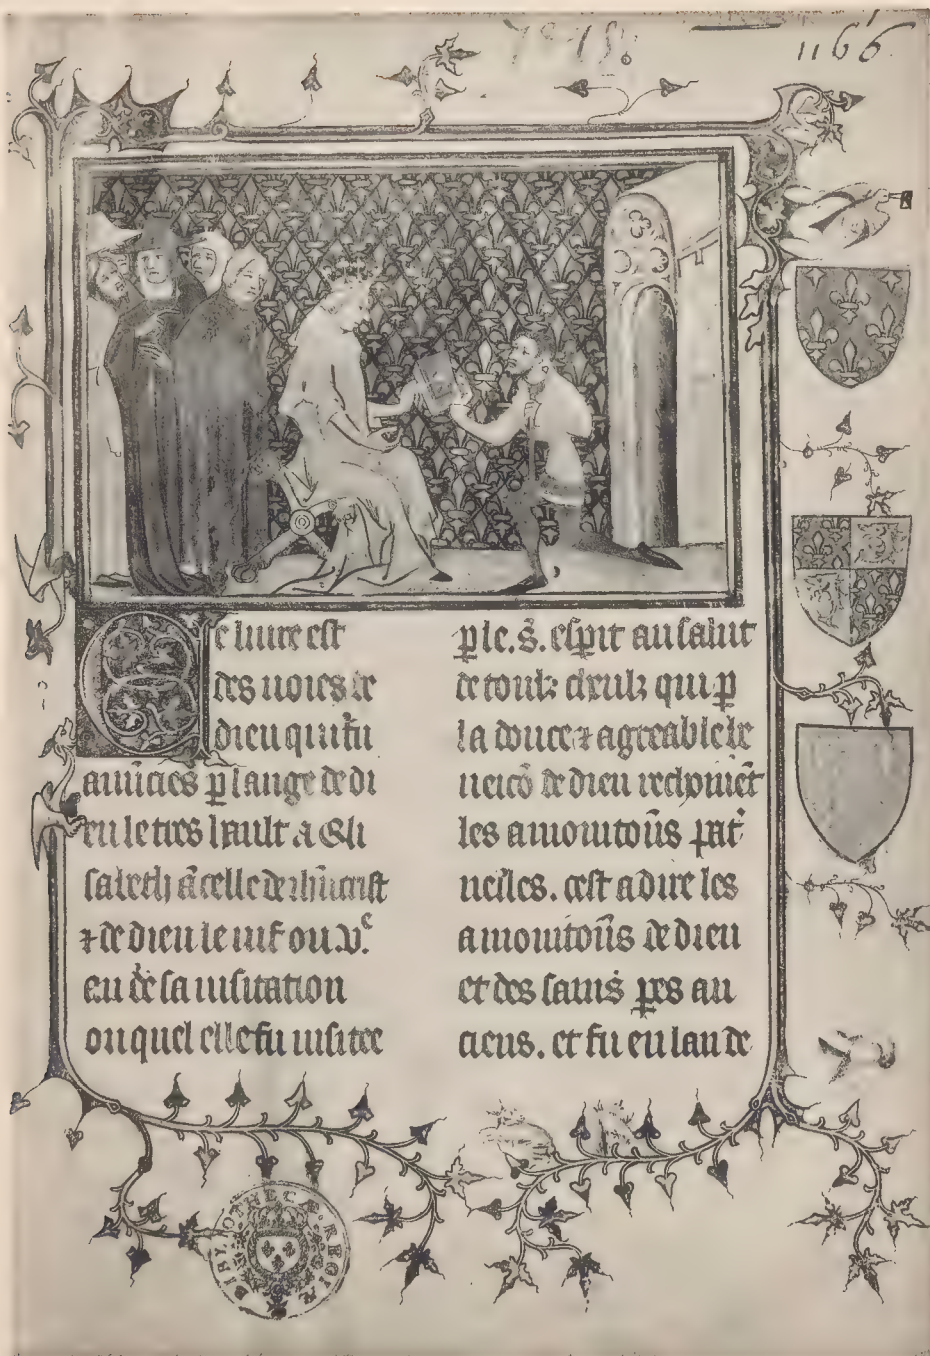 7e 18.
1166
Ce liure est
des uoies de
dieu qui fu
anūcies p̱ lange de di
eu le tres hault a Eli
sabeth ācelle de ihūcrist
⁊ de dieu le uif ou .v.e
an de sa uisitation
ou quel elle fu uisitee
p̱ le .s̄. esp̱it au salut
de toulz ceulz qui p̱
la douce ⁊ agreable be
neicō de dieu recoiuēt
les amonitoūs pat̄
nelles. cest a dire les
amonitoūs de dieu
et des sains p̱es an
ciens. et fu en lan de
BIBLIOTHECÆ REGIÆ